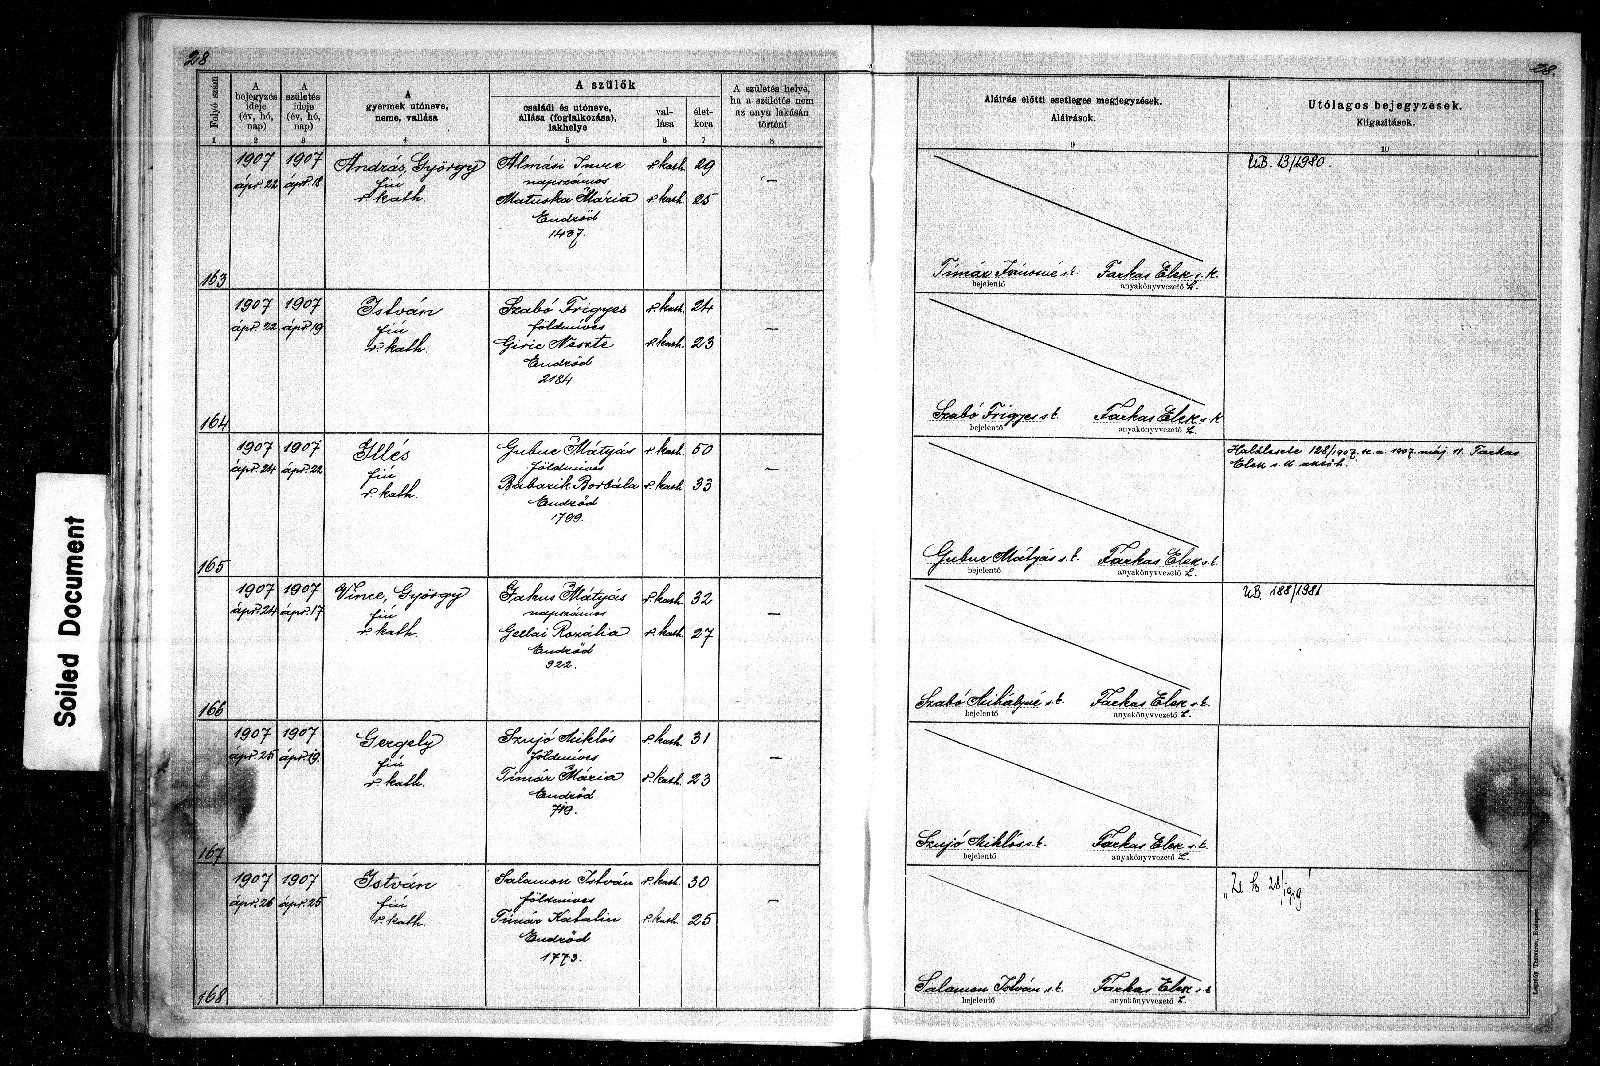 28
28.
Soiled Document
Folyó szám
A bejegyzés ideje (év, hó, nap)
A születés ideje (év, hó, nap)
A gyermek utóneve, neme, vallása
A szülők
családi és utóneve, állása (foglalkozása), lakhelye
val-lása
élet-kora
A születés helye, ha a születés nem az anya lakásán történt
Aláírás előtti esetleges megjegyzések. Aláírások.
Utólagos bejegyzések. Kiigazítások.
1 2 3 4 5 6 7 8 9 10
1907 1907 András, György Almási Imre r. kath. 29
ápr. 22 ápr. 18 fiú napszámos —
r. kath. Matuska Mária r. kath. 25
Endrőd
1437.
163
Tímár Jánosné s. k. Farkas Elek s. k.
bejelentő anyakönyvvezető h.
UB. 13/1980.
1907 1907 István Szabó Frigyes r. kath. 24
ápr. 22 ápr. 19 fiú földmíves —
r. kath. Giric Neszte r. kath. 23
Endrőd
2184
164
Szabó Frigyes s. k. Farkas Elek s. k
bejelentő anyakönyvvezető h.
1907 1907 Illés Gubuc Mátyás r. kath. 50
ápr. 24 ápr. 22 fiú földmíves —
r. kath. Babarik Borbála r. kath. 33
Endrőd
1799.
165
Gubuc Mátyás s. k. Farkas Elek s. k.
bejelentő anyakönyvvezető h.
Halálesete 128/1907. k. a. 1907. máj. 11. Farkas
Elek s. k. akvh.
1907 1907 Vince, György Jakus Mátyás r. kath. 32
ápr. 24 ápr. 17 fiú napszámos —
r. kath. Gellai Rozália r. kath. 27
Endrőd
922.
166
Szabó Mihályné s. k. Farkas Elek s. k.
bejelentő anyakönyvvezető h.
UB 188/1981
1907 1907 Gergely Szujó Miklós r. kath. 31
ápr. 25 ápr. 19. fiú földmíves —
r. kath. Tímár Mária r. kath. 23
Endrőd
719.
167
Szujó Miklós s. k. Farkas Elek s. k.
bejelentő anyakönyvvezető h.
1907 1907 István Salamon István r. kath. 30
ápr. 26 ápr. 25 fiú földmíves —
r. kath. Tímár Katalin r. kath. 25
Endrőd
1773.
168
Salamon István s. k. Farkas Elek s. k
bejelentő anyakönyvvezető h.